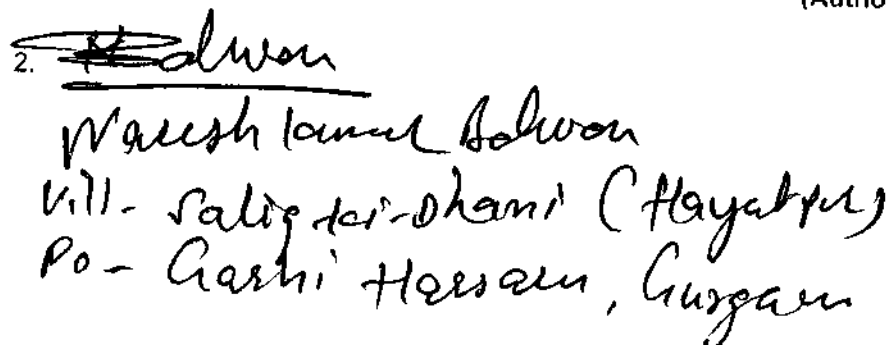 (Autho
2. Adwon
Naresh Kumar Adwon
Vill- Saliq-ki-Dhani (Hayatpur)
Po- Garhi Harsaru, Gurgaon